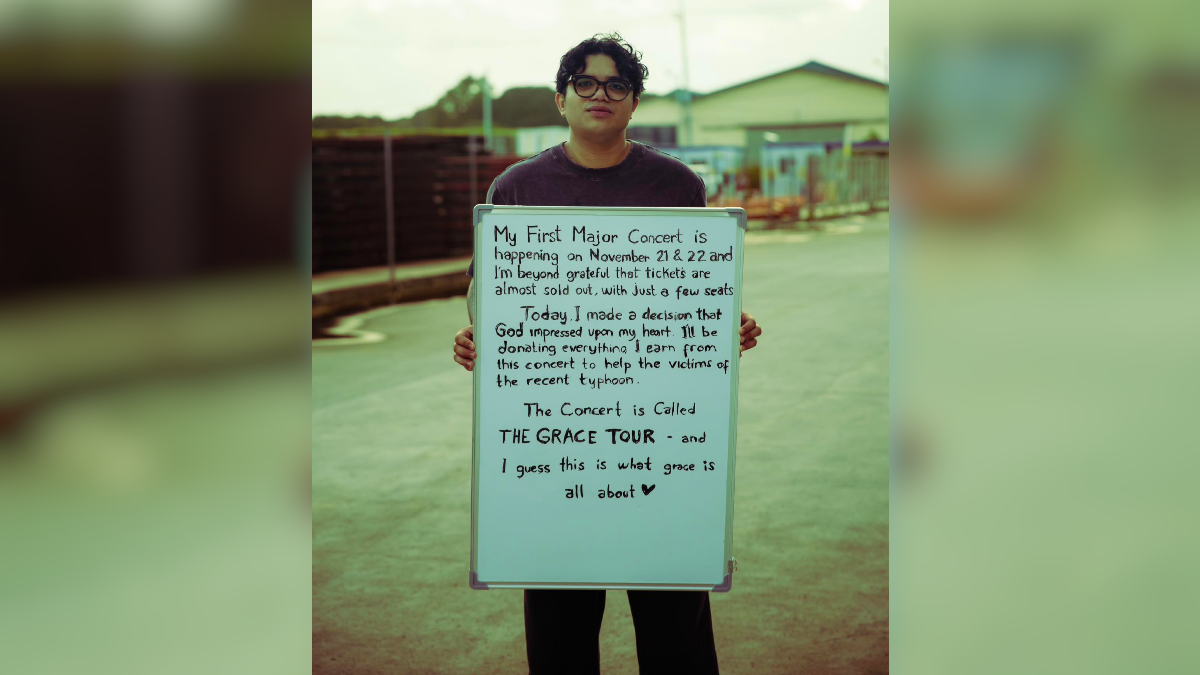 My First Major Concert is
happening on November 21 & 22 and
I'm beyond grateful that tickets are
almost sold out, with just a few seats
Today, I made a decision that
God impressed upon my heart. I'll be
donating everything I earn from
this concert to help the victims of
the recent typhoon.
The Concert is Called
THE GRACE TOUR - and
I guess this is what grace is
all about ♥